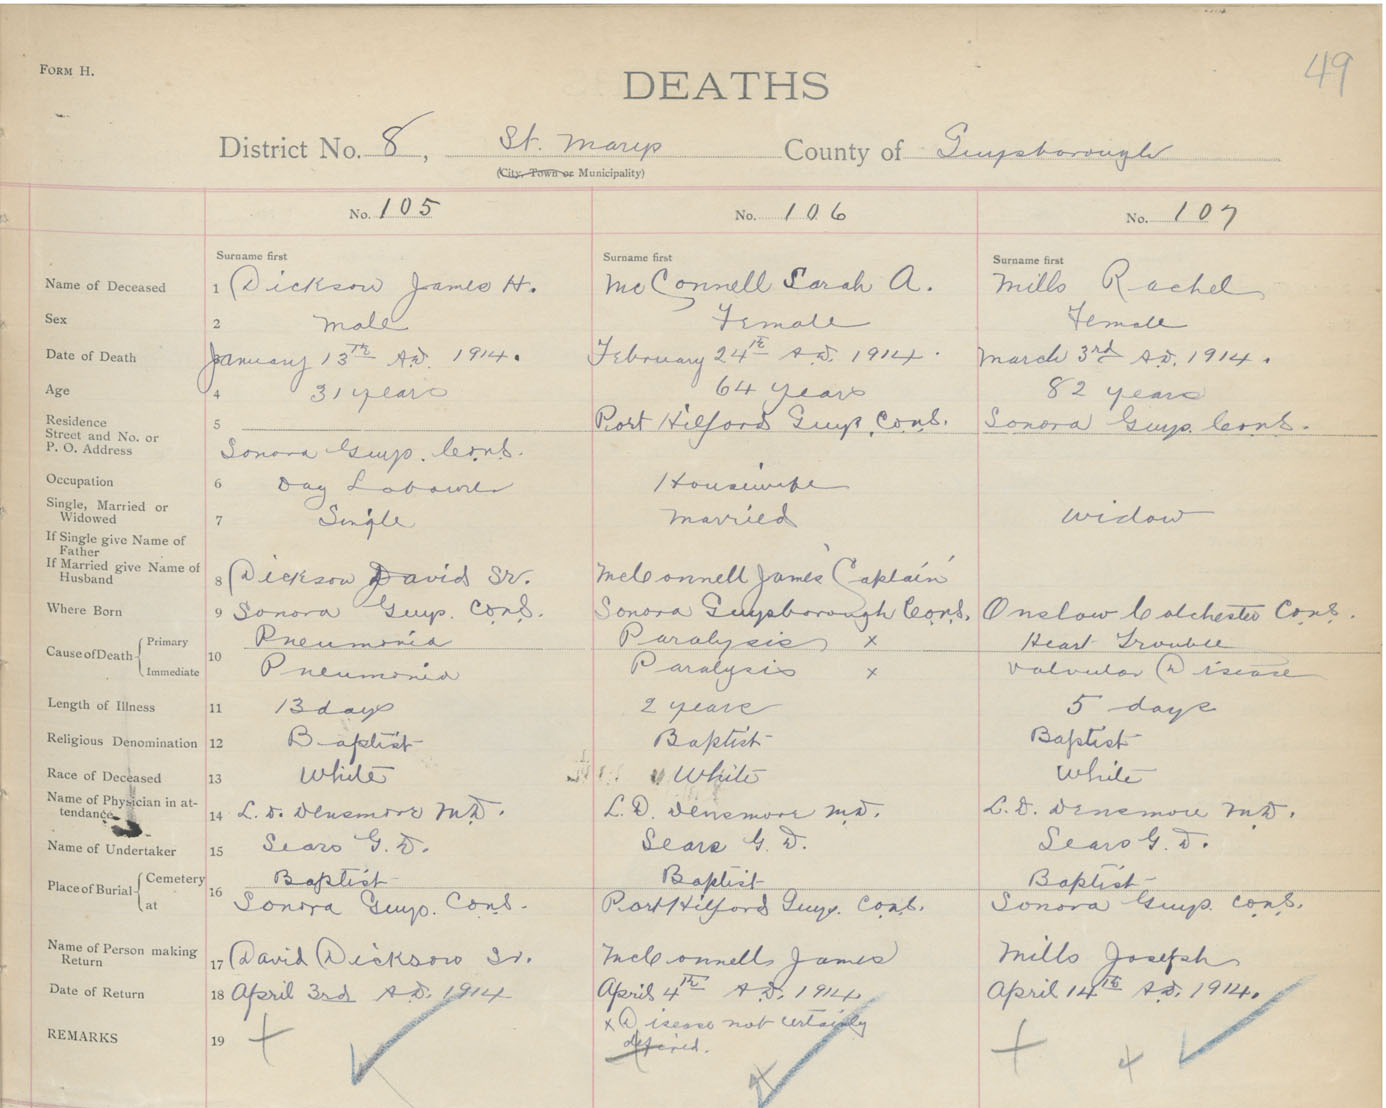 49
FORM H.
DEATHS
District No. 8, St. Marys County of Guysborough
(City, Town or Municipality)
No. 105 No. 106 No. 107
Surname first Surname first Surname first
Name of Deceased 1 Dickson James H. McConnell Sarah A. Mills Rachel
Sex 2 Male Female Female
Date of Death 3 January 13th A.D. 1914. February 24th A.D. 1914. March 3rd A.D. 1914.
Age 4 31 years 64 years 82 years
Residence
Street and No. or
P. O. Address 5 Port Hilford Guys. Co. N.S. Sonora Guys. Co. N.S.
Sonora Guys. Co. N.S.
Occupation 6 Day Labourer Housewife
Single, Married or
Widowed 7 Single Married Widow
If Single give Name of
Father
If Married give Name of
Husband 8 Dickson David Sr. McConnell James 'Captain'
Where Born 9 Sonora Guys. Co. N.S. Sonora Guysborough Co. N.S. Onslow Colchester Co. N.S.
Cause of Death Primary 10 Pneumonia Paralysis x Heart Trouble
Immediate Pneumonia Paralysis x Valvular Disease
Length of Illness 11 13 days 2 years 5 days
Religious Denomination 12 Baptist Baptist Baptist
Race of Deceased 13 White White White
Name of Physician in at-
tendance 14 L. D. Densmore M.D. L. D. Densmore M.D. L. D. Densmore M.D.
Name of Undertaker 15 Sears G. D. Sears G. D. Sears G. D.
Place of Burial Cemetery 16 Baptist Baptist Baptist
at Sonora Guys. Co. N.S. Port Hilford Guys. Co. N.S. Sonora Guys. Co. N.S.
Name of Person making
Return 17 David Dickson Sr. McConnell James Mills Joseph
Date of Return 18 April 3rd A.D. 1914 April 4th A.D. 1914 April 14th A.D. 1914.
REMARKS 19 x Disease not certainly
defined.